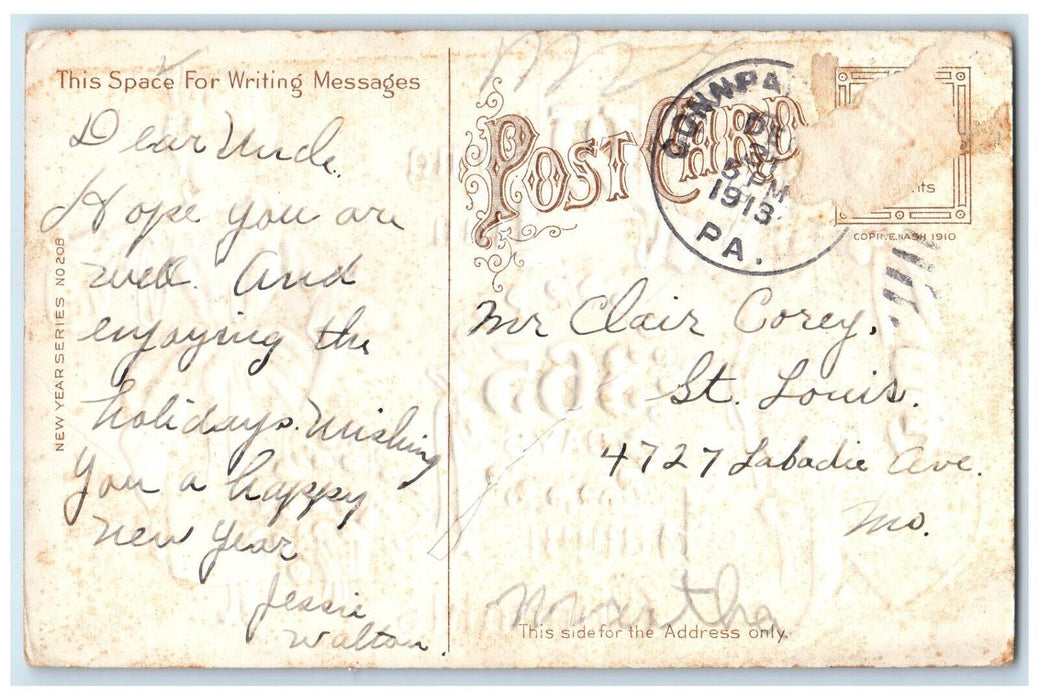 This Space For Writing Messages
Dear Uncle.
Hope you are
well. And
enjoying the
holidays. Wishing
you a happy
new year
Jessie
Walton.
NEW YEAR SERIES NO 208
POST CARD
PA.
5 PM
1913
COPR. E. NASH 1910
Mr Clair Corey,
St. Louis.
4727 Labadie Ave.
Mo.
This side for the Address only.